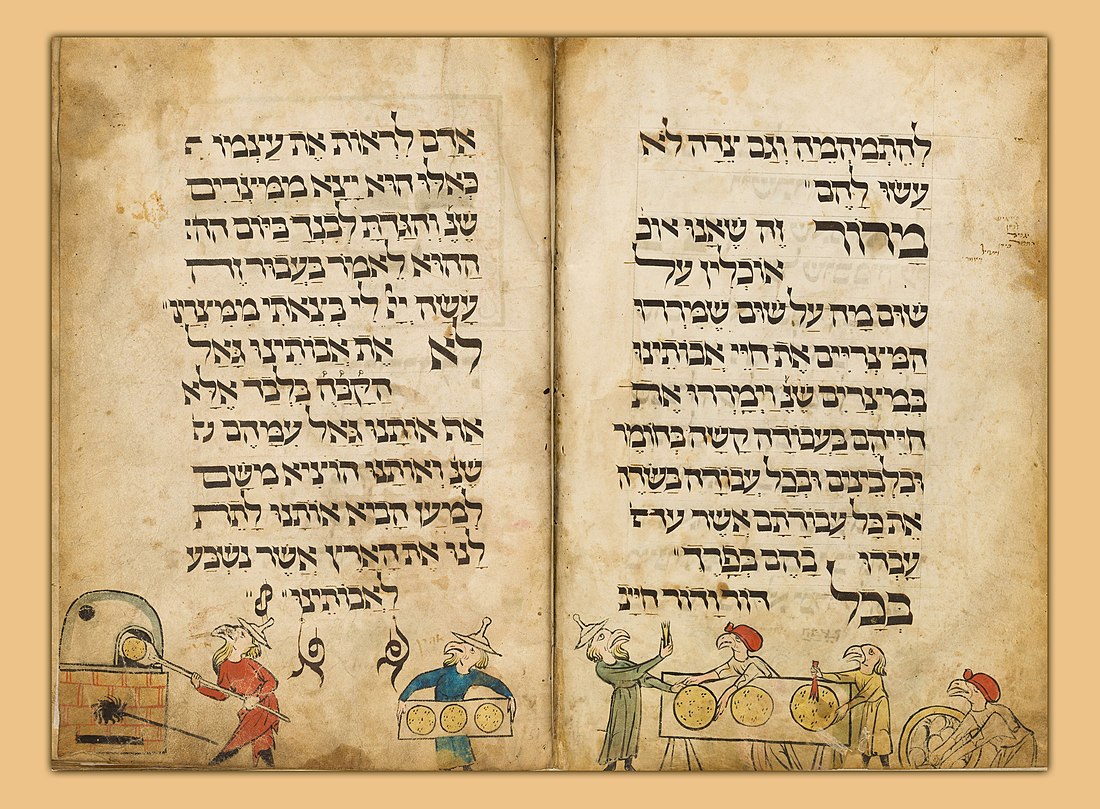 להתמהמה וגם צדה לא
עשו להם
מרור זה שאנו אוכ
אוכלין על
שום מה על שום שמררו
המצריים את חיי אבותינו
במצרים שנ וימררו את
חייהם בעבודה קשה בחומר
ובלבנים ובכל עבודה בשדה
את כל עבודתם אשר
עבדו בהם בפרך
בכל דור ודור חייב
אדם לראות את עצמו
כאלו הוא יצא ממצרים
שנ והגדת לבנך ביום
ההוא לאמר בעבור זה
עשה ייי לי בצאתי ממצרים
לא את אבותינו גאל
הקבה בלבד אלא
אף אותנו גאל עמהם
שנ ואותנו הוציא משם
למען הביא אותנו לתת
לנו את הארץ אשר נשבע
לאבותינו